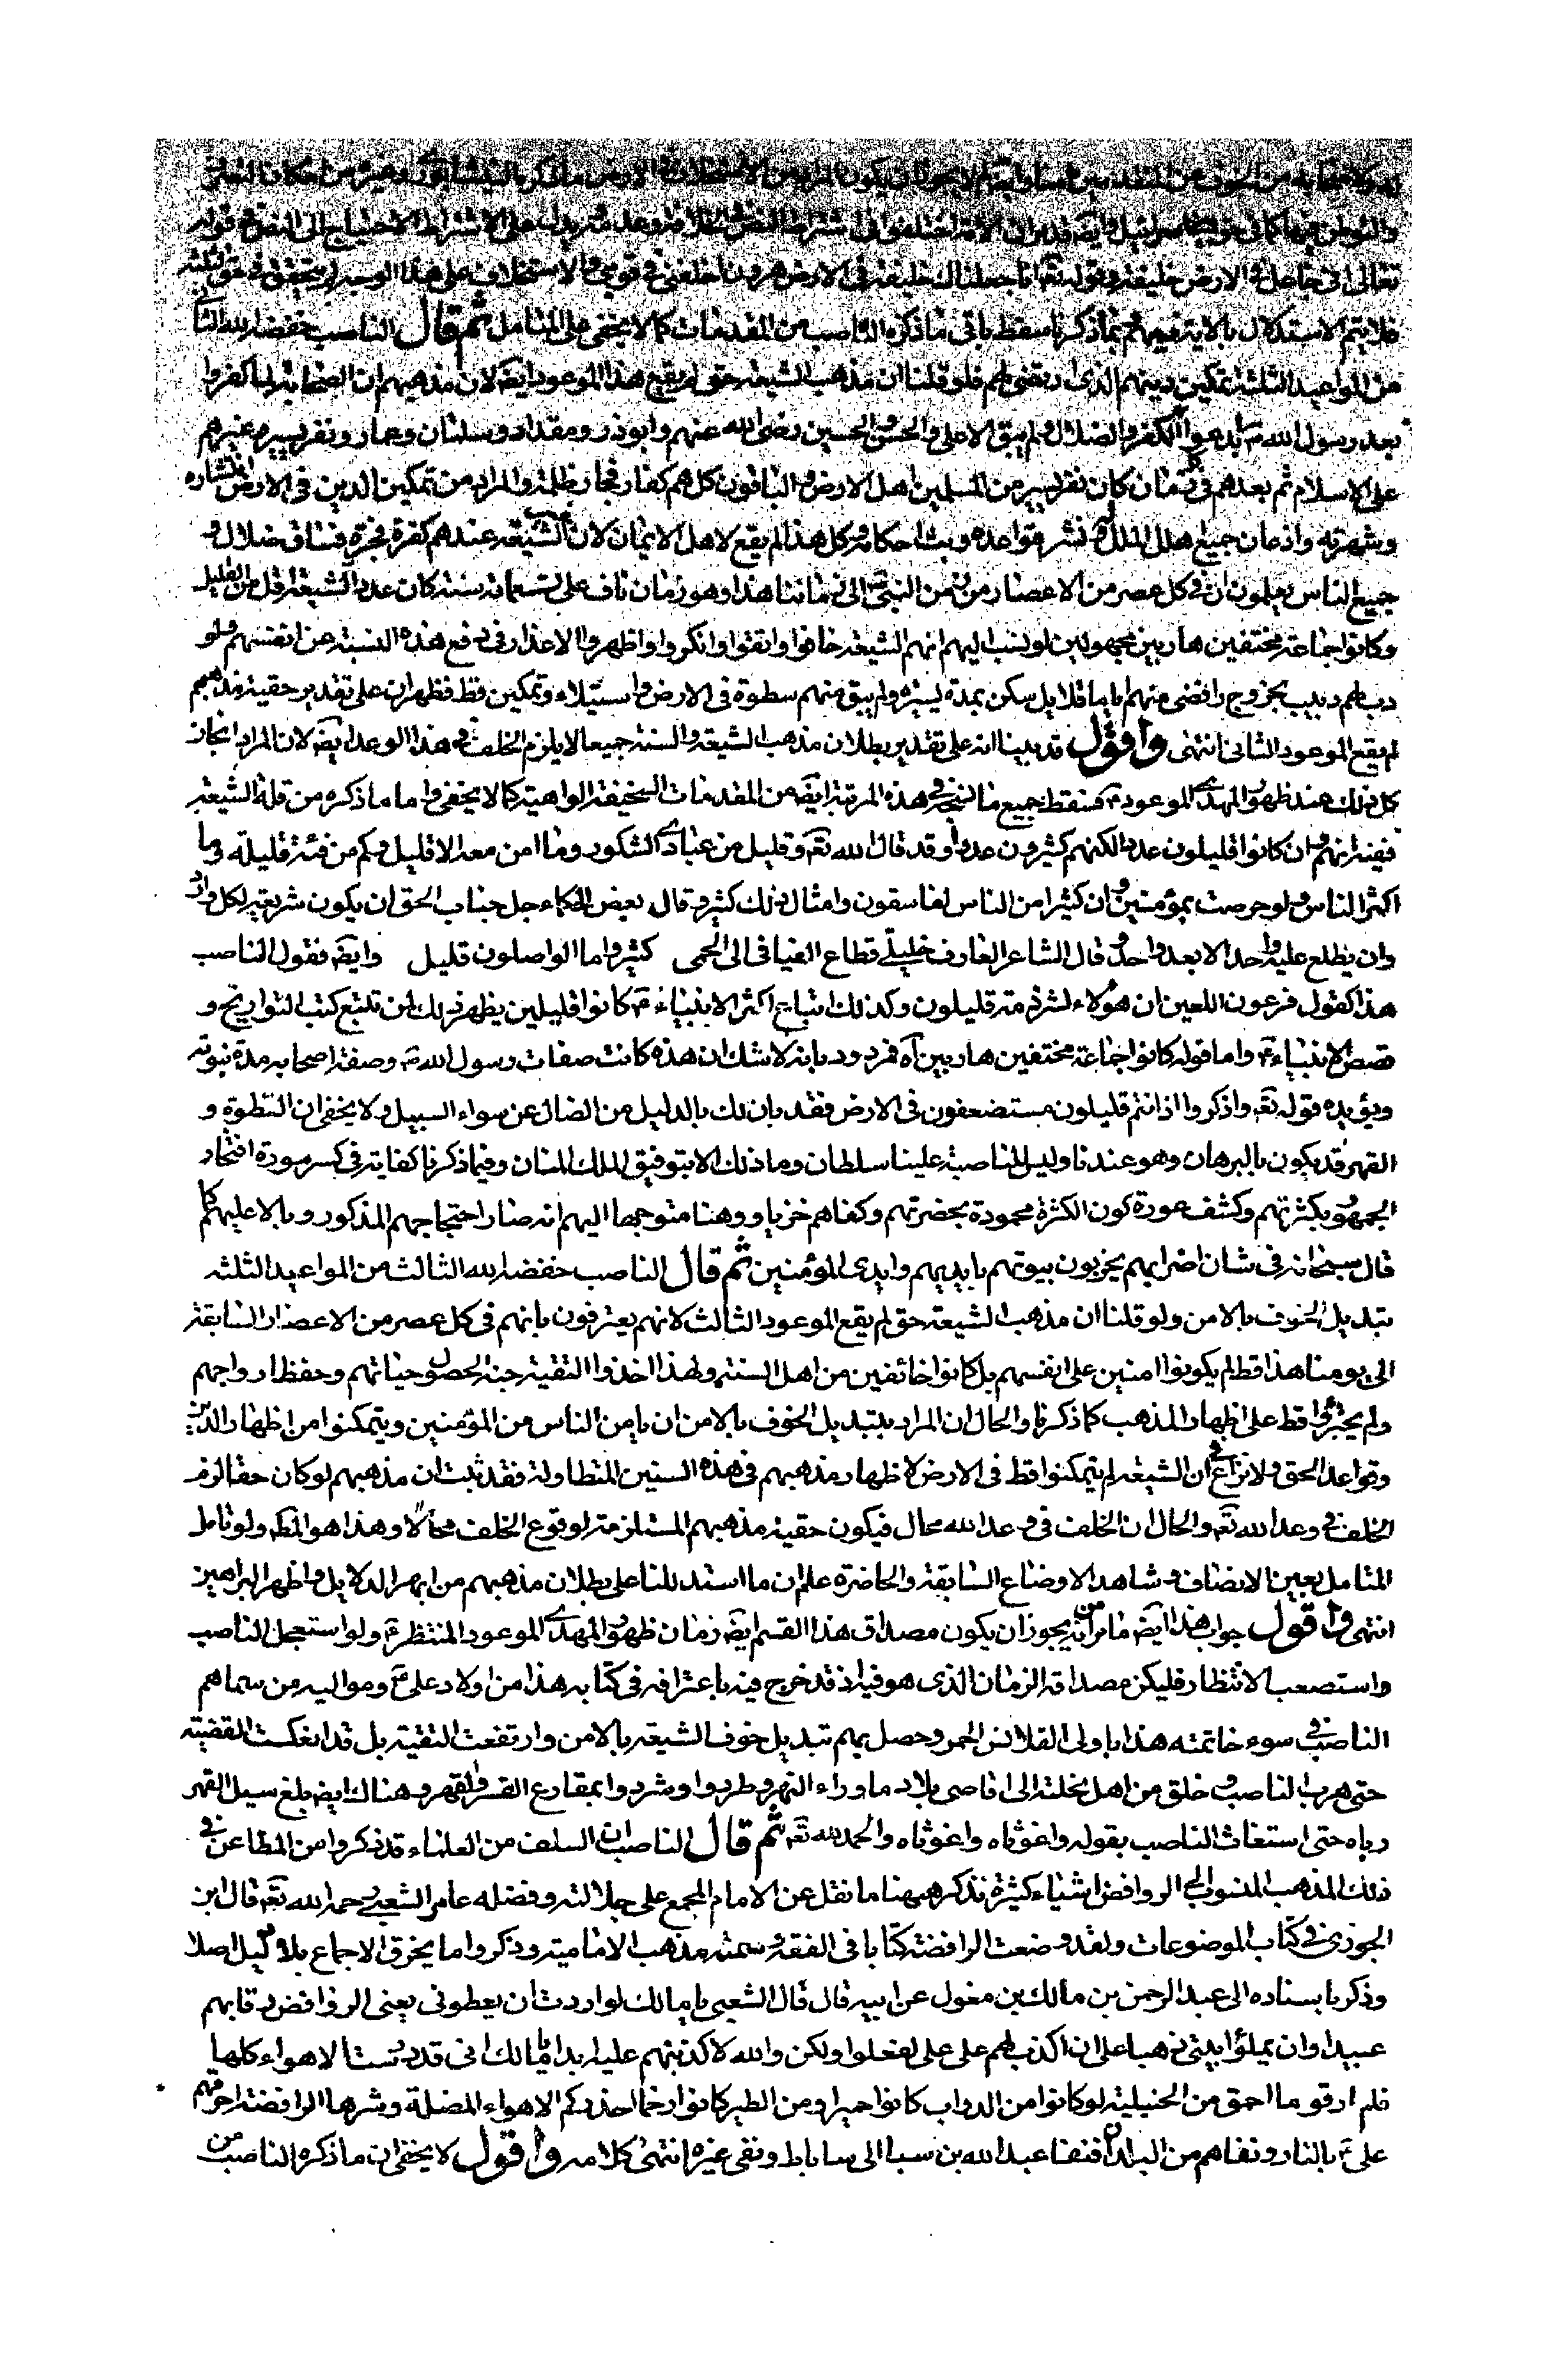 والتوطن فيها كما في حق بني اسرائيل وايضا قد مر ان الامة اختلفوا في اشتراط النص في الخلافة وعدمه يدل على الاشتراط الاحتياج الى النص في قوله
تعالى اني جاعل في الارض خليفة وقوله تعه انا جعلناك خليفة في الارض هرون اخلفني في قومي والاستخلاف على هذا الوجه لم يتحقق في حق ثلثة
فلا يتم الاستدلال بالاية فيهم بما ذكرنا سقط باقي ما ذكره الناصب من المقدمات كما لا يخفى على المتامل ثم قال الناصب خفضه الله الثاني
من المواعيد الثلثة تمكين دينهم الذي ارتضى لهم فلو قلنا ان مذهب الشيعة حق لم يقع هذا الموعود ايضا لان مذهبهم ان الصحابة لما كفروا
بعد رسول الله ص ابدعوا الكفر والضلال ولم يبق الا علي والحسن والحسين رضي الله عنهم وابوذر ومقداد وسلمان وعمار ونفر يسير غيرهم
على الاسلام ثم بعدهم في كل زمان كان نفر يسير من المسلمين اهل الارض والباقون كلهم كفار فجار ظلمة والمراد من تمكين الدين في الارض انتشاره
وشهرته واذعان جميع اهل الملل له ونشر قواعده وبث احكامه وكل هذا لم يقع لاهل الايمان لان غير الشيعة عندهم كفرة فجرة فساق ضلال و
جميع الناس يعلمون ان في كل عصر من الاعصار من زمن النبي ص الى زماننا هذا وهو زمان ناف على تسعمائة سنة كان عدد الشيعة اقل من القليل
وكانوا جماعة مختفين هاربين مجهولين لو نسب اليهم انهم الشيعة خافوا واتقوا وانكروا واظهروا الاعذار في دفع هذه النسبة عن انفسهم ولو
دب لهم دبيب بخروج رافضي منهم اياما قلايل سكن بمدة يسيرة ولم يبق منهم سطوة في الارض واستيلاء وتمكين قط فظهر ان على تقدير حقية مذهبهم
لم يقع الموعود الثاني انتهى واقول قد بينا انه على تقدير بطلان مذهب الشيعة والسنة جميعا لا يلزم الخلف في هذا الوعد ايضا لان المراد انجاز
كل ذلك عند ظهور المهدي الموعود ع فسقط جميع ما نسجه في هذه المرتبة ايضا من المقدمات السخيفة الواهية كما لا يخفى واما ما ذكره من قلة الشيعة
ففيه انهم وان كانوا قليلون عددا لكنهم كثيرون عددا وقد قال الله تعه وقليل من عبادي الشكور وما امن معه الا قليل وكم من فئة قليلة وما
اكثر الناس ولو حرصت بمؤمنين وان كثيرا من الناس لفاسقون وامثال ذلك كثير وقال بعض الحكماء جل جناب الحق ان يكون شريعة لكل وارد
وان يطلع عليه واحدا الا بعد واحد وقال الشاعر العارف خليلي قطاع الفيافي الى الحمى كثير واما الواصلون قليل وايضا فقول الناصب
هذا كقول فرعون اللعين ان هؤلاء لشرذمة قليلون وكذلك اتباع اكثر الانبياء ع كانوا قليلين يظهر ذلك لمن تتبع كتب التواريخ و
قصص الانبياء ع واما قوله كانوا جماعة مختفين هاربين اه فمردود بانه لا شك ان هذه كانت صفات رسول الله ص وصفة اصحابه مدة نبوته
ويؤيده قوله تعه واذكروا اذ انتم قليلون مستضعفون في الارض فقد بان لك بالدليل من الضال عن سواء السبيل ولا يخفى ان السطوة و
القهر قد يكون بالبرهان وهو عندنا وليس للناصبة علينا سلطان وما ذلك الا بتوفيق الملك المنان وفيما ذكرنا كفاية في كسر سورة افتخار
الجمهور بكثرتهم وكشف عورة كون الكثرة محمودة بحضرتهم وكفاهم خزيا ووهنا متوجها اليهم انه صار احتجاجهم المذكور وبالا عليهم كما
قال سبحانه في شان اضرابهم يخربون بيوتهم بايديهم وايدي المؤمنين ثم قال الناصب خفضه الله الثالث من المواعيد الثلثة
تبديل الخوف بالامن ولو قلنا ان مذهب الشيعة حق لم يقع الموعود الثالث لانهم يعترفون بانهم في كل عصر من الاعصار السابقة
الى يومنا هذا قط لم يكونوا امنين على انفسهم بل كانوا خائفين من اهل السنة ولهذا اخذوا التقية جنة لحصول حياتهم وحفظ ارواحهم
ولم يجترؤا قط على اظهار المذهب كما ذكرنا والحال ان المراد بتبديل الخوف بالامن ان يامن الناس من المؤمنين ويتمكنوا من اظهار الدين
وقواعد الحق ولا نزاع في ان الشيعة لم يتمكنوا قط في الارض لاظهار مذهبهم في هذه السنين المتطاولة فقد ثبت ان مذهبهم لو كان حقا لزم
الخلف في وعد الله تعه والحال ان الخلف في وعد الله محال فيكون حقية مذهبهم المستلزمة لوقوع الخلف محالا وهذا هو المط ولو تامل
المتامل بعين الانصاف وشاهد الاوضاع السابقة والحاضرة علم ان ما استدللنا على بطلان مذهبهم من ابهر الدلايل واظهر البراهين
انتهى واقول جواب هذا ايضا ما مر من انه يجوز ان يكون مصداق هذا القسم ايضا زمان ظهور المهدي الموعود المنتظر ع ولو استعجل الناصب
واستصعب الانتظار فليكن مصداقه الزمان الذي هو فيه اذ قد خرج فيه باعترافه في كتابه هذا من اولاد علي ع ومواليه من سماهم
الناصب في سوء خاتمته هذا باولي القلانس الحمر وحصل بهم تبديل خوف الشيعة بالامن وارتفعت التقية بل قد انعكست القضية
حتى هرب الناصب وخلق من اهل نحلته الى اقاصي بلاد ماوراء النهر وطردوا وشردوا بمقارع القسر والقهر وهناك ايضا بلغ سيل القهر
رباه حتى استغاث الناصب بقوله واغوثاه واغوثاه والحمد لله تعه ثم قال الناصب ان السلف من العلماء قد ذكروا من المطاعن في
ذلك المذهب المنسوب الى الروافض اشياء كثيرة نذكر ههنا ما نقل عن الامام المجمع على جلالته وفضله عامر الشعبي رحمه الله تعه قال ابن
الجوزي في كتاب الموضوعات ولقد وضعت الرافضة كتابا في الفقه وسمته مذهب الامامية وذكروا ما يخرق الاجماع بلا دليل اصلا
وذكر باسناده الى عبد الرحمن بن مالك بن مغول عن ابيه قال قال الشعبي يا مالك لو اردت ان يعطوني يعني الروافض رقابهم
عبيدا وان يملؤا بيتي ذهبا على ان اكذب لهم على علي لفعلوا ولكن والله لا كذبتهم عليه ابدا يا مالك اني قد درست الاهواء كلها
فلم ار قوما احمق من الخشبية لو كانوا من الدواب كانوا حميرا ومن الطير كانوا رخما احذركم الاهواء المضلة وشرها الرافضة احرقهم
علي ع بالنار ونفاهم من البلاد فنفا عبد الله بن سبا الى ساباط ونفى غيره انتهى كلامه واقول لا يخفى ان ما ذكره الناصب من